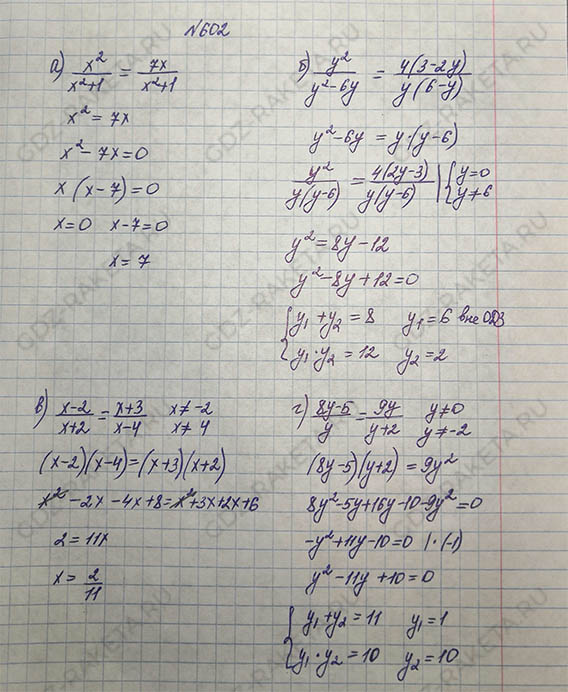 №602
а) x²/(x²+1) = 7x/(x²+1)
x² = 7x
x² - 7x = 0
x (x-7) = 0
x=0 x-7=0
x = 7
б) y²/(y²-6y) = 4(3-2y)/(y(6-y))
y²-6y = y·(y-6)
y²/(y(y-6)) = 4(2y-3)/(y(y-6)) | { y=0
y≠6
y² = 8y-12
y²-8y+12=0
{ y₁+y₂ = 8 y₁=6 вне ОДЗ
y₁·y₂ = 12 y₂=2
в) (x-2)/(x+2) = (x+3)/(x-4) x≠-2
x≠4
(x-2)(x-4)=(x+3)(x+2)
x²-2x-4x+8=x²+3x+2x+6
2=11x
x = 2/11
г) (8y-5)/y = 9y/(y+2) y≠0
y≠-2
(8y-5)(y+2) = 9y²
8y²-5y+16y-10-9y²=0
-y²+11y-10=0 |·(-1)
y²-11y+10=0
{ y₁+y₂=11 y₁=1
y₁·y₂=10 y₂=10
GDZ-RAKETA.RU